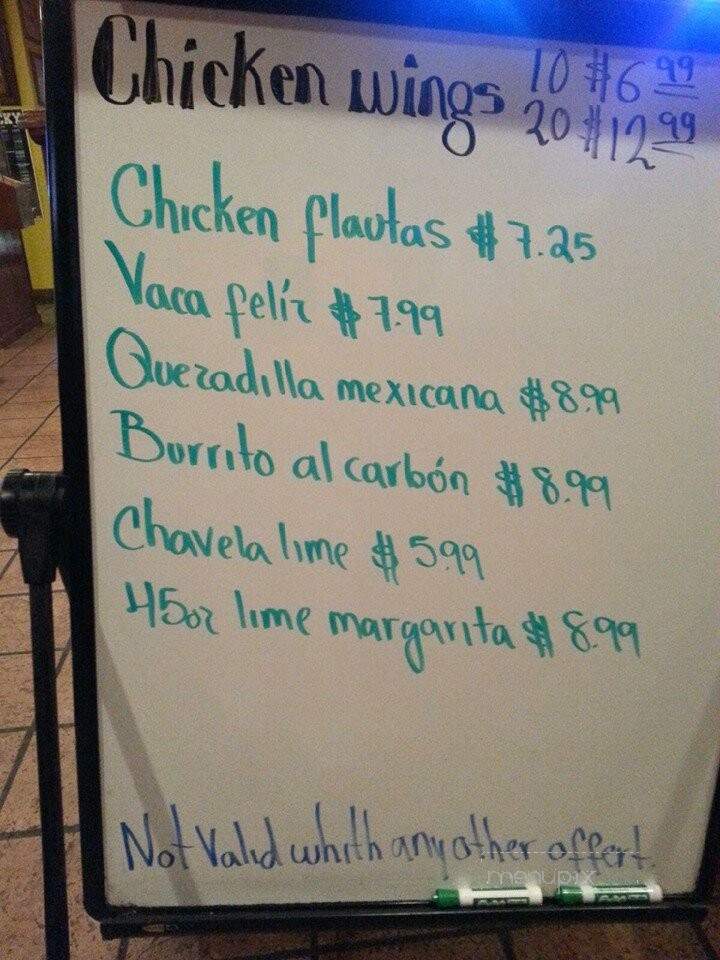 Chicken wings 10 $6.99
20 $12.99
Chicken flautas $7.25
Vaca felíz $7.99
Quezadilla mexicana $8.99
Burrito al carbón $8.99
Chavela lime $5.99
45oz lime margarita $8.99
Not Valid whith any other offert.
menupix
CKY